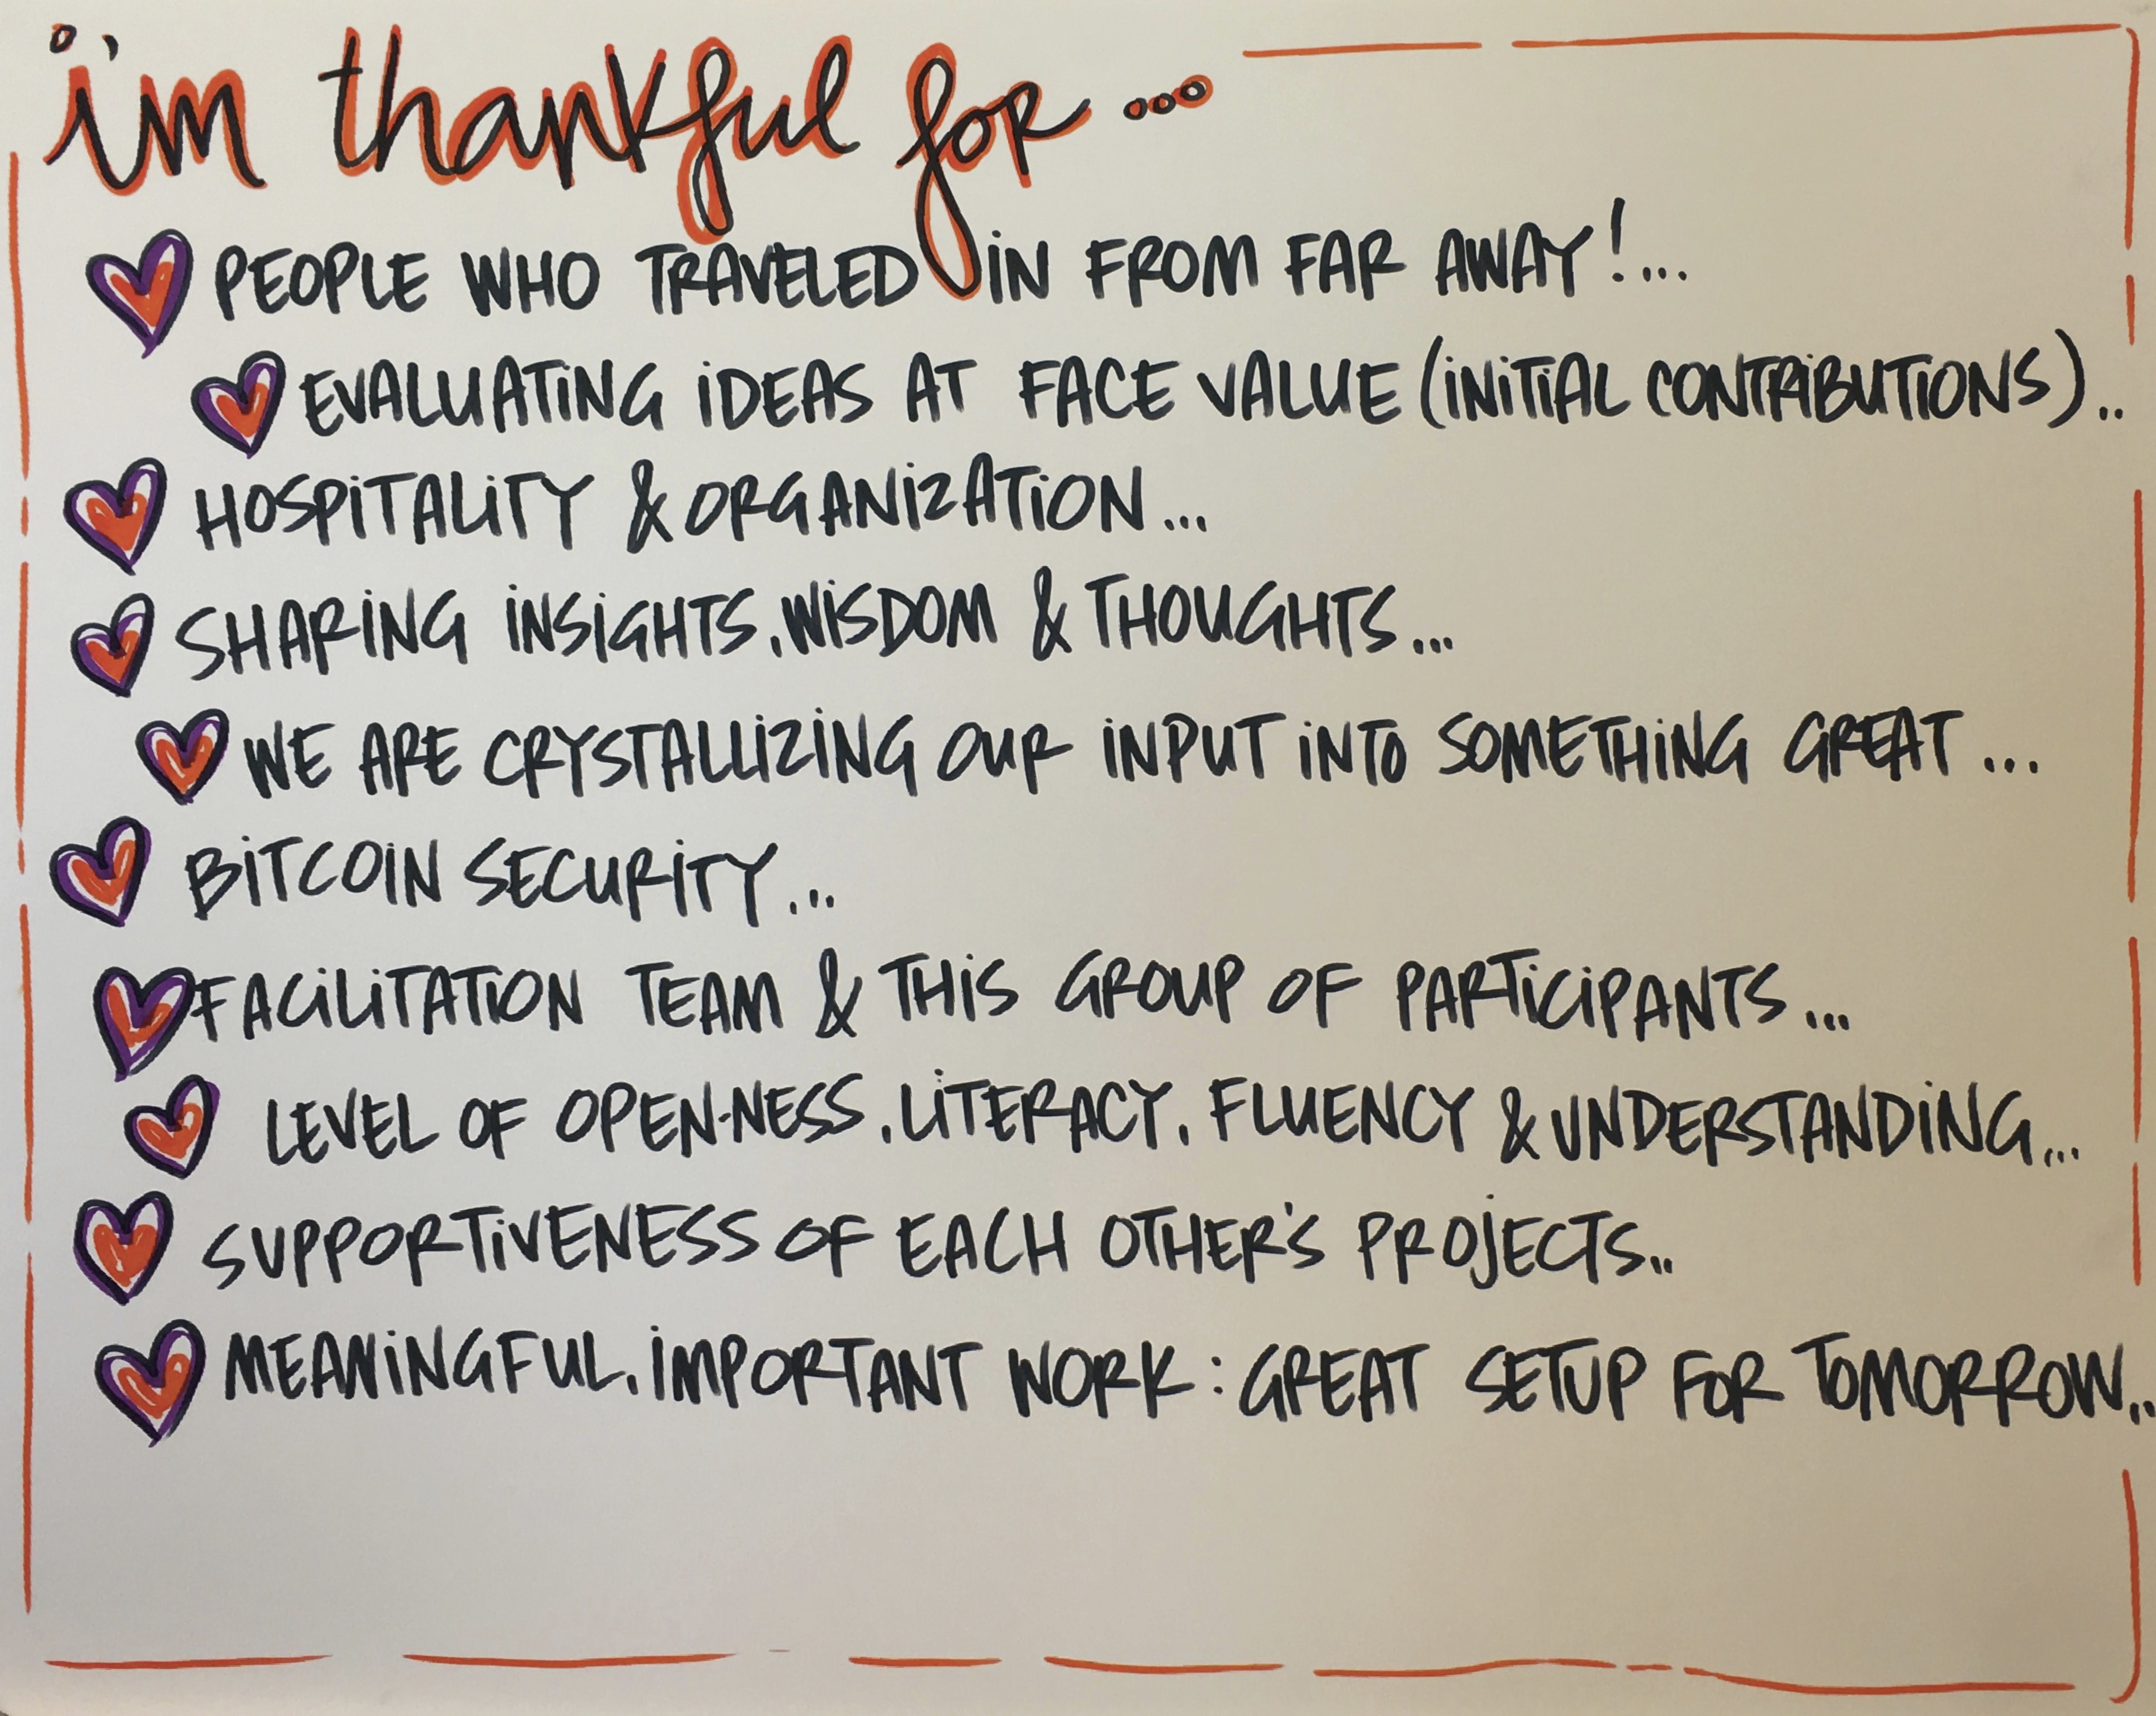 i'm thankful for ...
PEOPLE WHO TRAVELED IN FROM FAR AWAY!...
EVALUATING IDEAS AT FACE VALUE (INITIAL CONTRIBUTIONS)..
HOSPITALITY & ORGANIZATION...
SHARING INSIGHTS, WISDOM & THOUGHTS...
WE ARE CRYSTALLIZING OUR INPUT INTO SOMETHING GREAT...
BITCOIN SECURITY...
FACILITATION TEAM & THIS GROUP OF PARTICIPANTS...
LEVEL OF OPEN-NESS, LITERACY, FLUENCY & UNDERSTANDING...
SUPPORTIVENESS OF EACH OTHER'S PROJECTS..
MEANINGFUL, IMPORTANT WORK: GREAT SETUP FOR TOMORROW..